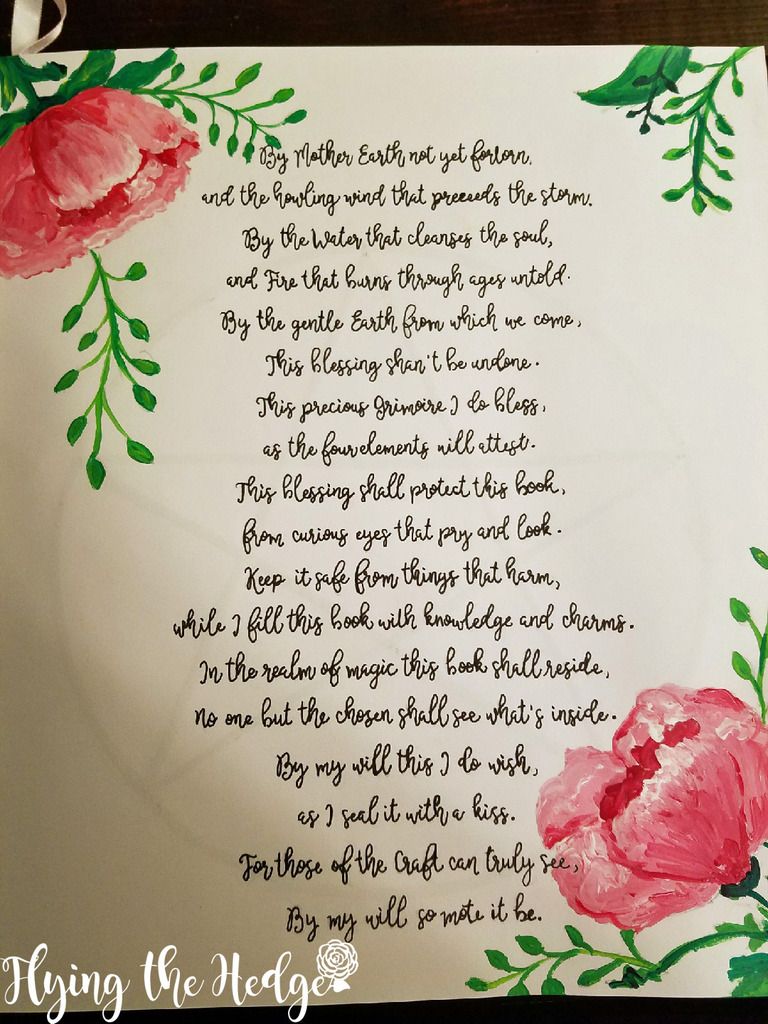 By Mother Earth not yet forlorn,
and the howling wind that preceeds the storm.
By the Water that cleanses the soul,
and Fire that burns through ages untold.
By the gentle Earth from which we come,
This blessing shan't be undone.
This precious Grimoire I do bless,
as the four elements will attest.
This blessing shall protect this book,
from curious eyes that pry and look.
Keep it safe from things that harm,
while I fill this book with knowledge and charms.
In the realm of magic this book shall reside,
No one but the chosen shall see what's inside.
By my will this I do wish,
as I seal it with a kiss.
For those of the Craft can truly see,
By my will so mote it be.
Flying the Hedge